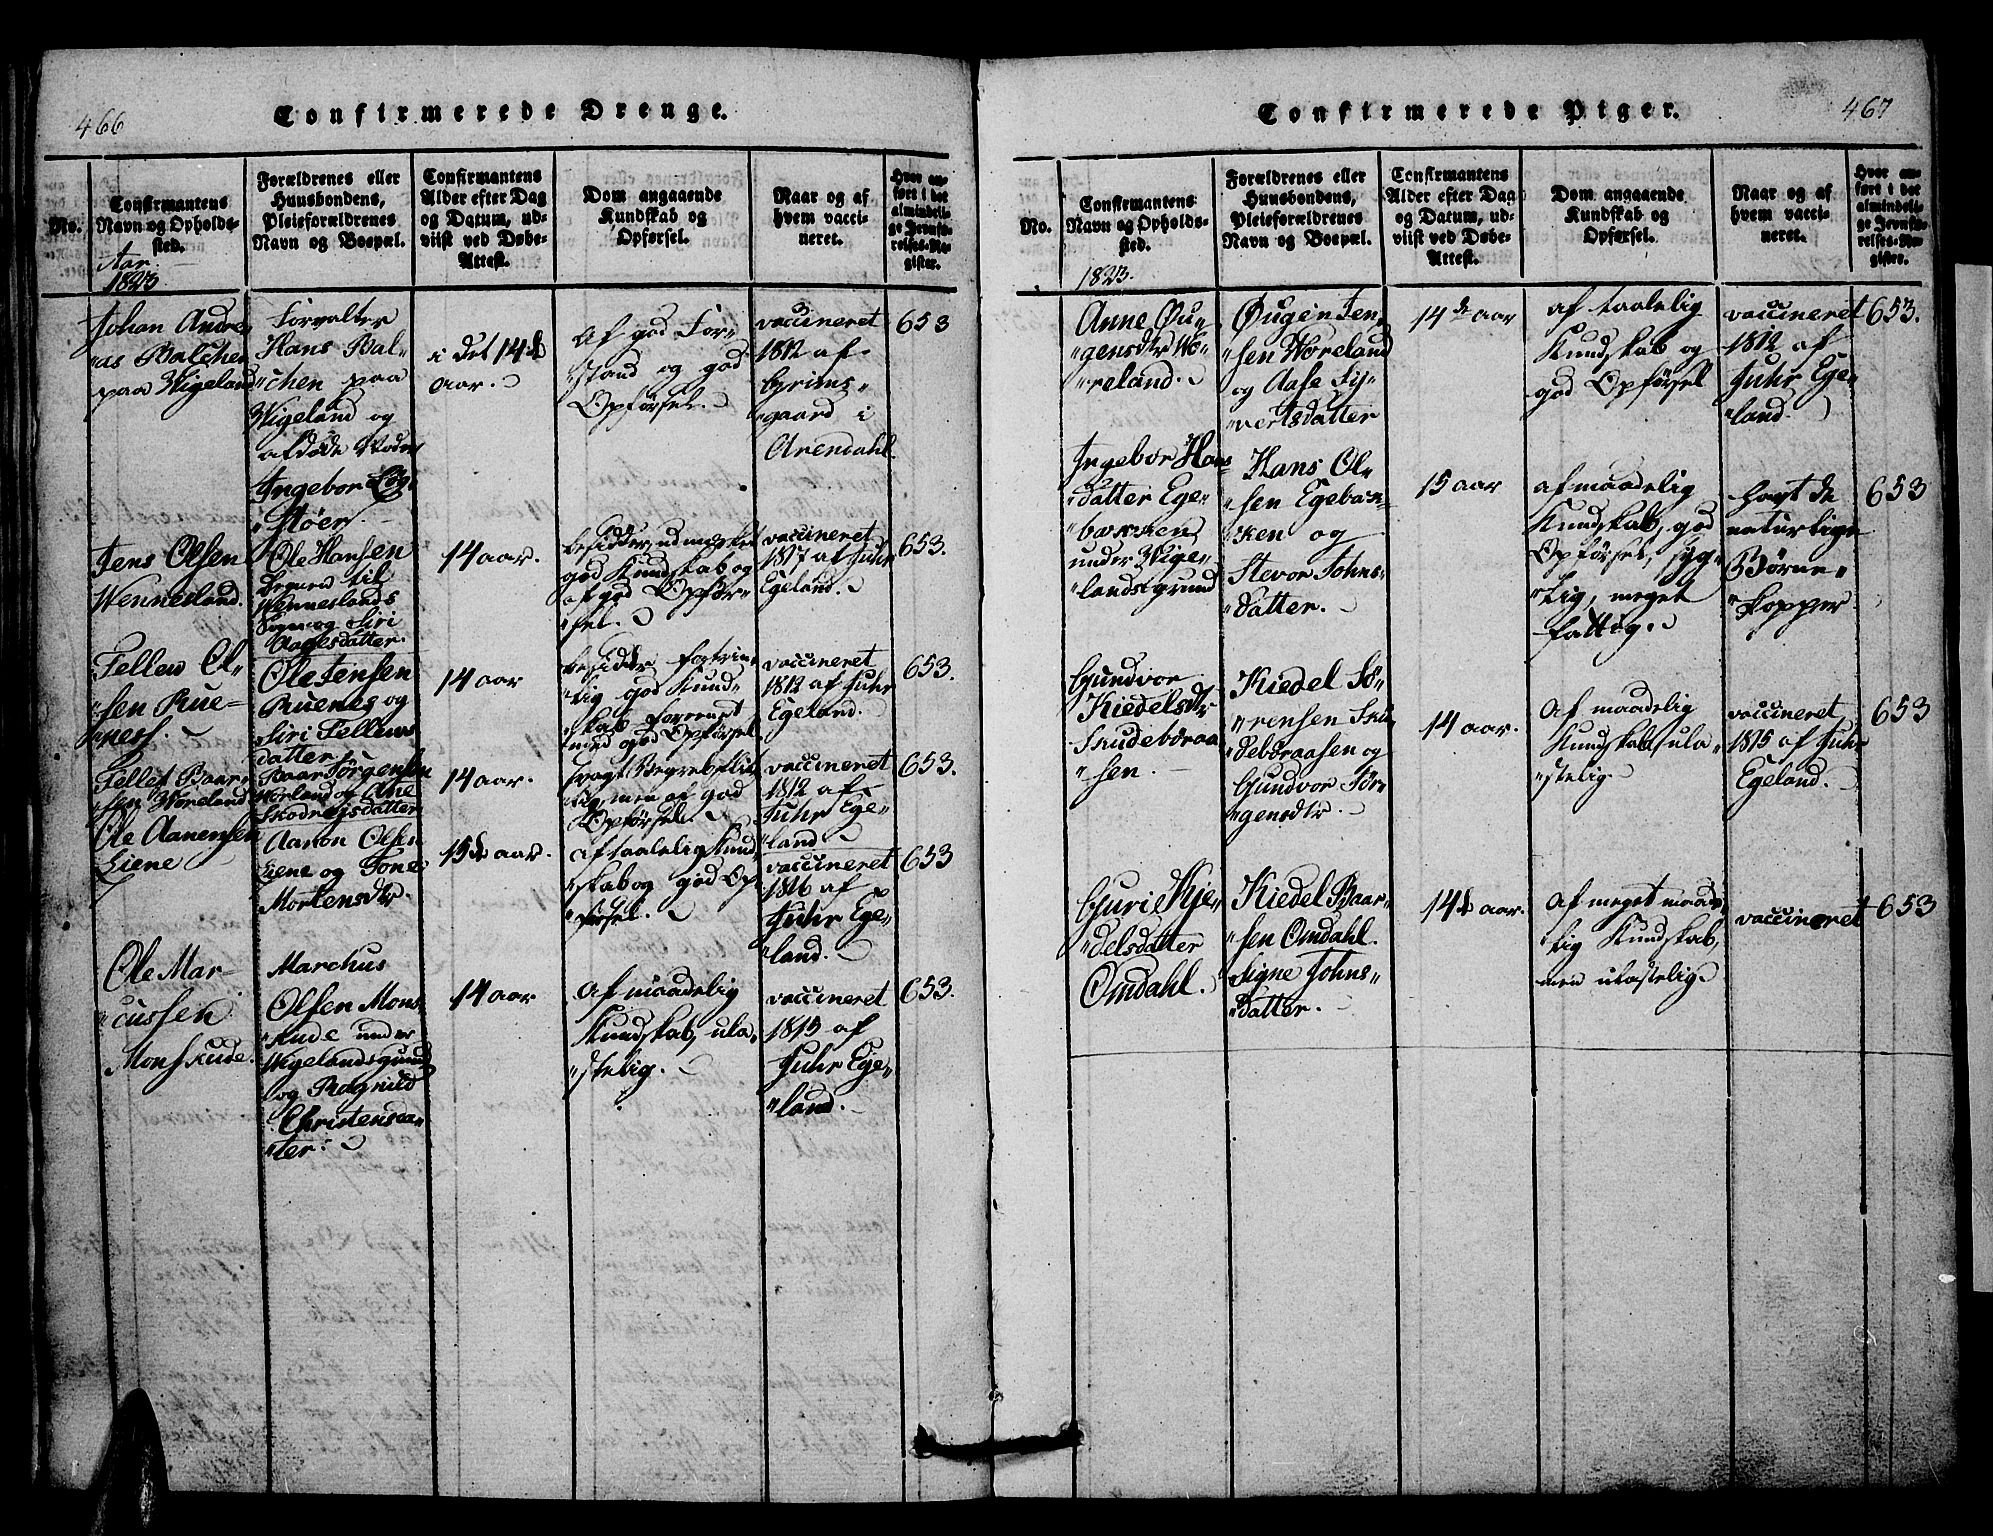 466
Confirmerede Drenge.
No.
Confirmantens
Navn og Opholds-
sted.
Aar
1823
Forældrenes eller
Huusbondens,
Pleieforældrenes
Navn og Boepæl.
Confirmantens
Alder efter Dag
og Datum, ud-
viist ved Døbe-
Attest.
Dom angaaende
Kundskab og
Opførsel.
Naar og af
hvem vacci-
neret.
Hvor an-
ført i det
almindeli-
ge Jevnfø-
relses-Re-
gister.
Johan Andre-
"as Balchen
paa Wigeland
Forvalter
Hans Bal-
"chen paa
Wigeland og
afdøde Moder
Ingebor
"Støer.
i det 14de
aar.
Af god For-
"stand og god
Opførsel.
vaccineret
1812 af
Grims-
"gaard i
Arendahl.
653
Jens Olsen
Wennesland.
Ole Hansen
til
Wenneslands
Sogn og Siri
Aagesdatter.
14 aar.
besidder udmærket
god Kundskab og
af god Opfør-
"sel.
vaccineret
1817 af Juhr
Egeland.
653.
Fellew Ol-
"sen Rue-
"ness.
Ole Jensen
Ruenes og
Siri Fellews
datter
14 aar
besidder fortrin-
"lig god Kund-
skab forreent
med god Opførsel
vaccineret
1812 af Juhr
Egeland.
653.
Fellef Baar-
"sen Woreland
Baar Jørgensen
Worland og Ane
Skodnejsdatter
14 aar.
svagt Begrebs
men af god
Opførsel.
vaccineret
1812 af
Juhr Ege-
"land
653.
Ole Aanensen
Liene
Aanon Olsen
Liene og Tone
Mortensdtr.
15de aar.
af taalelig Kund-
"skab og god Op-
"førsel.
vaccineret
1816 af
Juhr Ege-
"land.
653
Ole Mar-
"cussen
Monskude.
Marchus
Olsen Mons-
"kude under
Wigelandsgrund
og Ragnild
Christensdat-
"ter.
14 aar
af maadelig
Kundskab, ula-
"stelig.
vaccineret
1815 af
Juhr Ege-
"land.
653.
Confirmerede Piger.
467
No.
Confirmantens
Navn og Opholds-
sted.
1823.
Forældrenes eller
Huusbondens,
Pleieforældrenes
Navn og Boepæl.
Confirmantens
Alder efter Dag
og Datum, ud-
viist ved Døbe-
Attest.
Dom angaaende
Kundskab og
Opførsel.
Naar og af
hvem vacci-
neret.
Hvor an-
ført i det
almindeli-
ge Jevnfø-
relses-Re-
gister.
Anne Øu-
"gensdtr Wo-
"reland.
Øugen Jen-
"sen Woreland
og Aase Sy-
"vertsdatter
14de aar
af taalelig
Kundskab og
god Opførsel
vaccineret
1812 af
Juhr Ege-
"land.
653.
Ingebor Hans
"datter Ege-
"bækken
under Wige-
"landsgrund
Hans Ol-
"sen Egebæk-
"ken og
Stevor Johns-
"datter.
15 aar
af maadelig
Kundskab, god
Opførsel, syg-
"lig, meget
fattig.
havt de
naturlige
Børne-
"kopper.
653
Gundvor
Kiedelsdtr
Skudeboraa-
"sen.
Kiedel Sø-
"rensen Sku-
"deboraasen og
Gundvor Jør-
"gensdtr.
14 aar.
Af maadelig
Kundskab, ula-
"stelig.
vaccineret
1815 af Juhr
Egeland.
653
Guri Kje-
"delsdatter
Omdahl.
Kiedel Baar-
"sen Omdahl.
Signe Johns-
"datter.
14de aar.
Af meget maade-
"lig Kundskab,
men ulastelig.
vaccineret
653